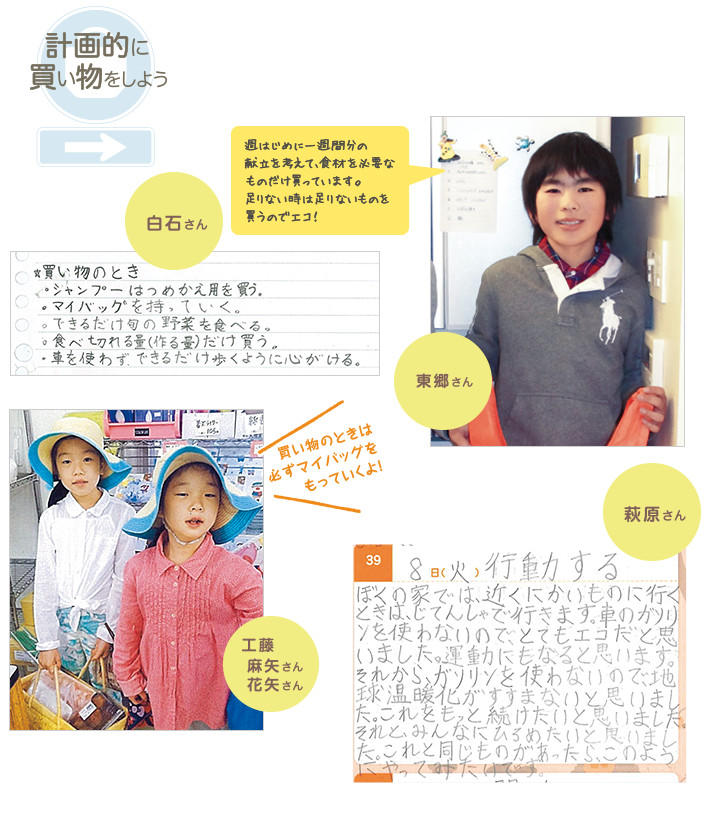 計画的に
買い物をしよう
週はじめに一週間分の
献立を考えて、食材を必要な
ものだけ買っています。
足りない時は足りないものを
買うのでエコ!
白石さん
☆買い物のとき
・シャンプーはつめかえ用を買う。
・マイバッグを持っていく。
・できるだけ旬の野菜を食べる。
・食べ切れる量(作る量)だけ買う。
・車を使わず、できるだけ歩くように心がける。
東郷さん
買い物のときは
必ずマイバッグを
もっていくよ!
工藤
麻矢さん
花矢さん
萩原さん
39 8日(火)行動する
ぼくの家では、近くにかいものに行く
ときは、じてんしゃで行きます。車のガソリ
ンを使わないので、とてもエコだと思
いました。運動にもなると思います。
それから、ガソリンを使わないので、地
球温暖化がすすまないと思いまし
た。これをもっと続けたいと思いました。
それと、みんなにひろめたいと思いまし
た。これと同じものがあったら、このよう
にやってみたいです。